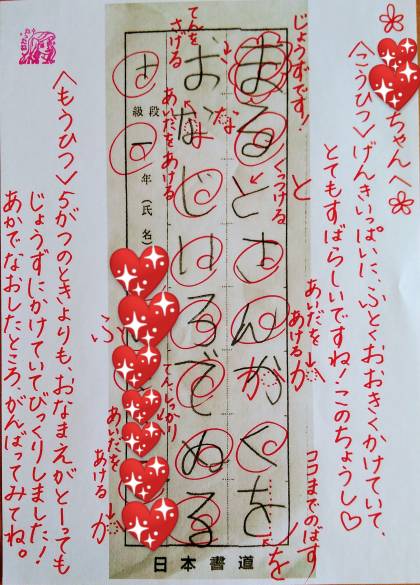 ちゃんへ
<こうひつ>げんきいっぱいに、ふとくおおきくかけていて、
とてもすばらしいですね!このちょうし♡
じょうずです!
くっつける
と
あいだをあける
が
ココまでのばす
を
まるとさんかくを
おなじいろでぬる
てんをさける
な
あいだをあける
級
段
一年(氏名)
ふ
あいだをあける
か
日本書道
<もうひつ>5がつのときよりも、おなまえがとーっても
じょうずにかけていてびっくりしました!
あかでなおしたところ、がんばってみてね。